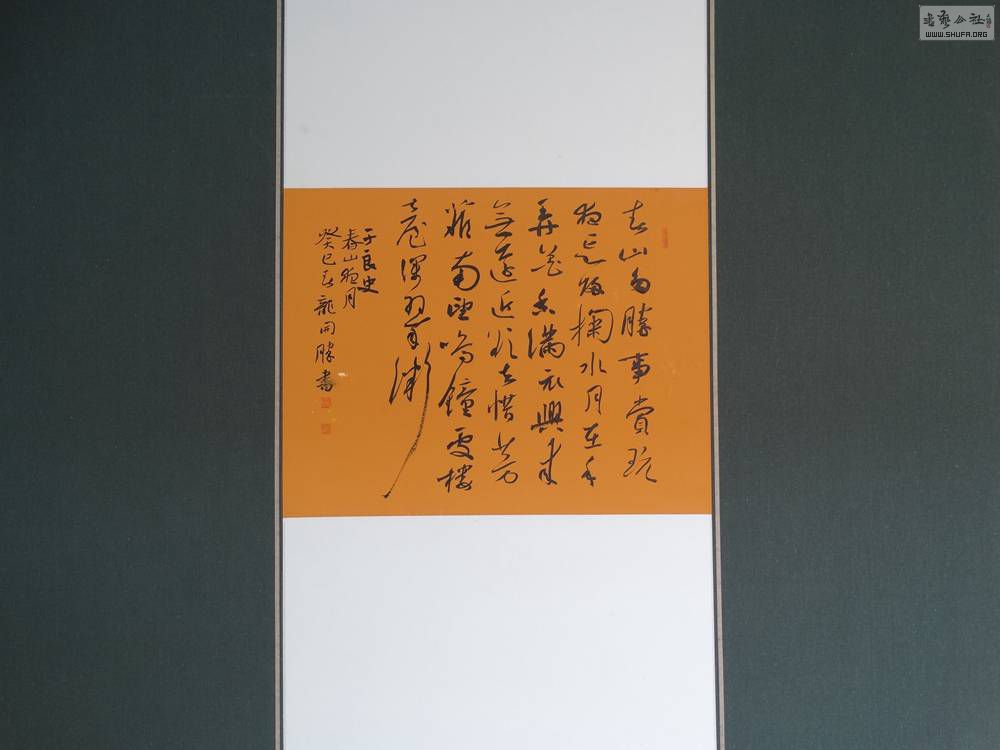 春山多勝事賞玩
夜忘歸掬水月在手
弄花香滿衣興來
無遠近欲去惜芳
菲南望鳴鐘處樓
臺深翠微
于良史
春山夜月
癸巳春龍開勝書
书艺公社
WWW.SHUFA.ORG